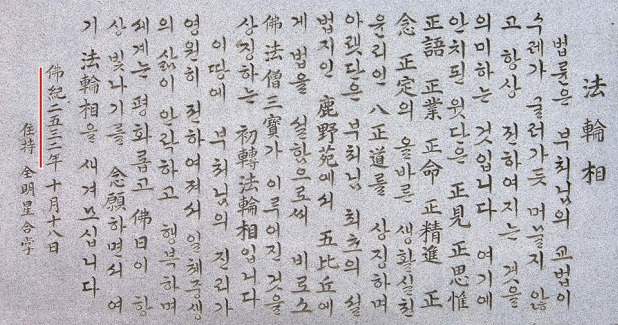 法輪相
법륜은 부처님의 교법이
수레가 굴러가듯 머물지 않
고 항상 전하여지는 것을
의미하는 것입니다 여기에
안치된 윗단은 正見 正思惟
正語 正業 正命 正精進 正
念 正定의 올바른 생활실천
윤리인 八正道를 상징하며
아랫단은 부처님 최초의 설
법지인 鹿野苑에서 五比丘에
게 법을 설함으로써 비로소
佛法僧三寶가 이루어진 것을
상징하는 初轉法輪相입니다
이땅에 부처님의 진리가
영원히 전하여져서 일체중생
의 삶이 안락하고 행복하며
세계는 평화롭고 佛日이 항
상 빛나기를 念願하면서 여
기 法輪相을 새겨 모십니다
佛紀二五三二年 十月十八日
住持 全明星 合字